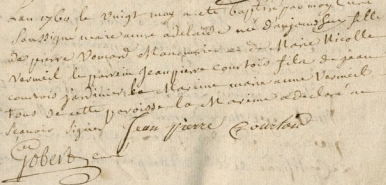 Lan 1760 le vingt may a été baptisé par moy curé
soussigné marie anne adelaide née d'aujourd'huy fille
de pierre vemond Manouvrier et de Marie Nicolle
Vermeil le parein jean pierre courtois fils de jean
courtois jardinier la Mareine marie anne Vermeil
tous de cette paroisse la Mareine a déclaré ne
scavoir signer Jean Pierre Courtois
Gobert